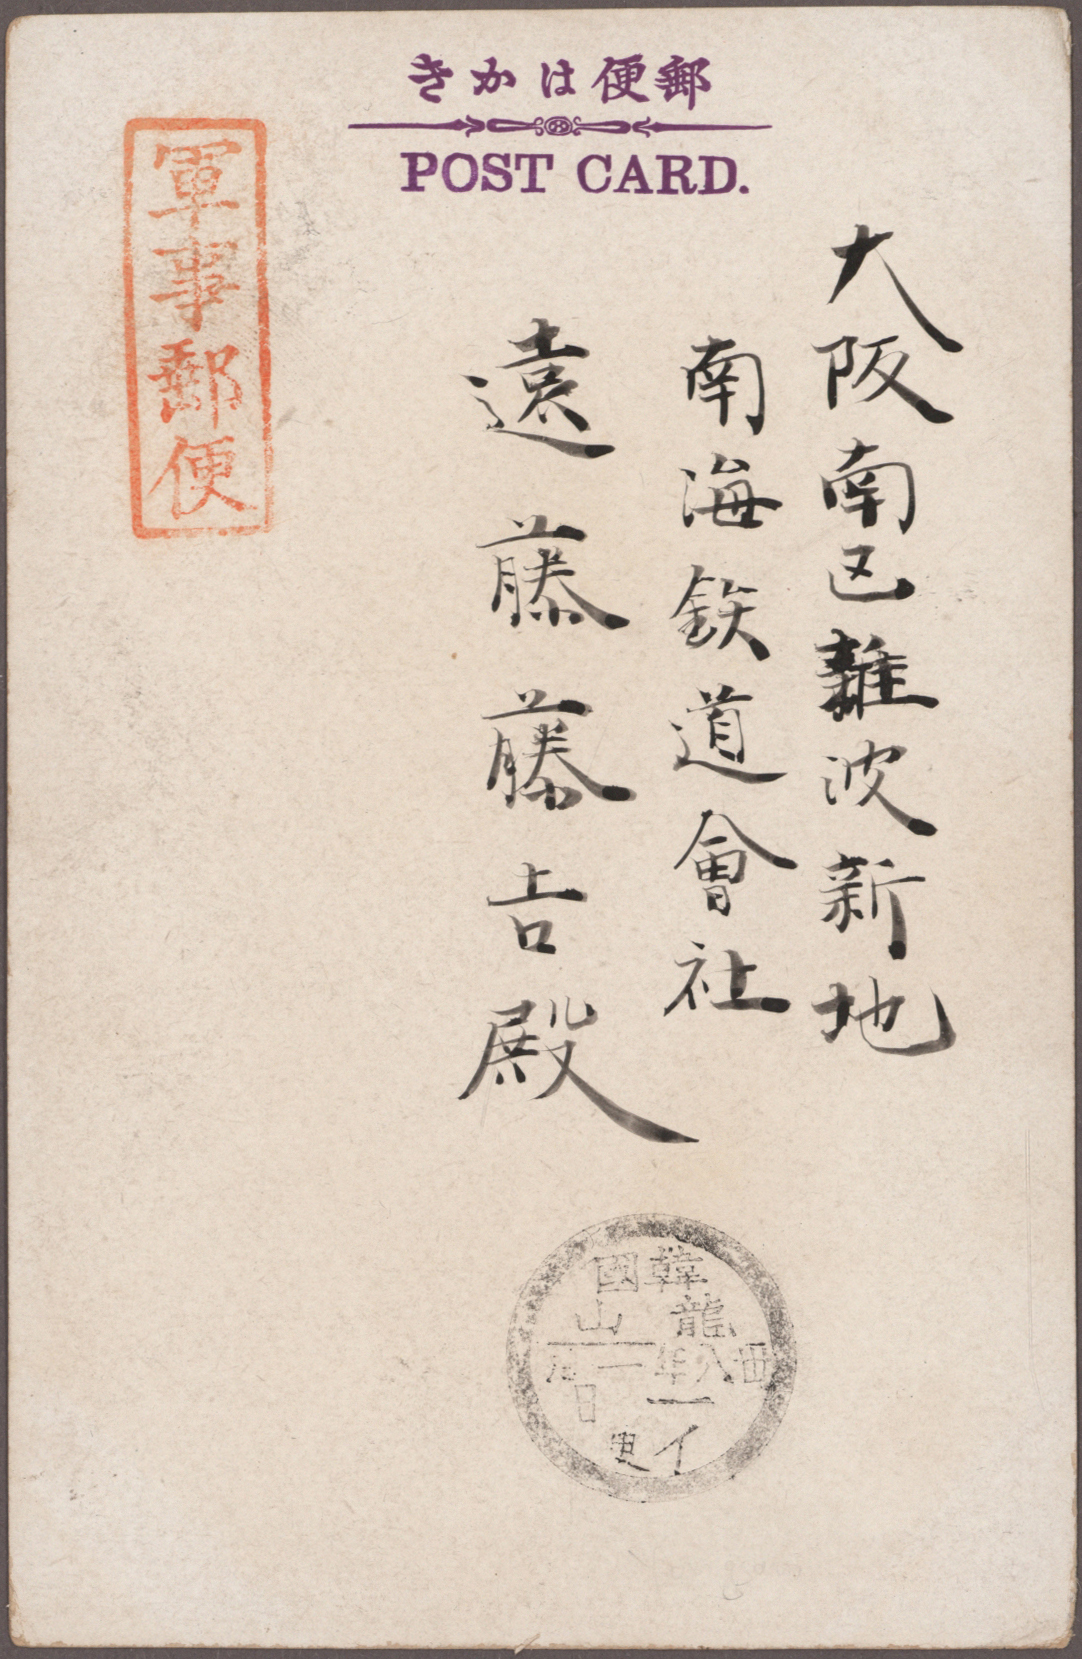 郵便はかき
POST CARD.
軍事郵便
大阪南区難波新地
南海鉄道會社
遠藤藤吉殿
韓國
龍山
卅八年一月
一日
イ便